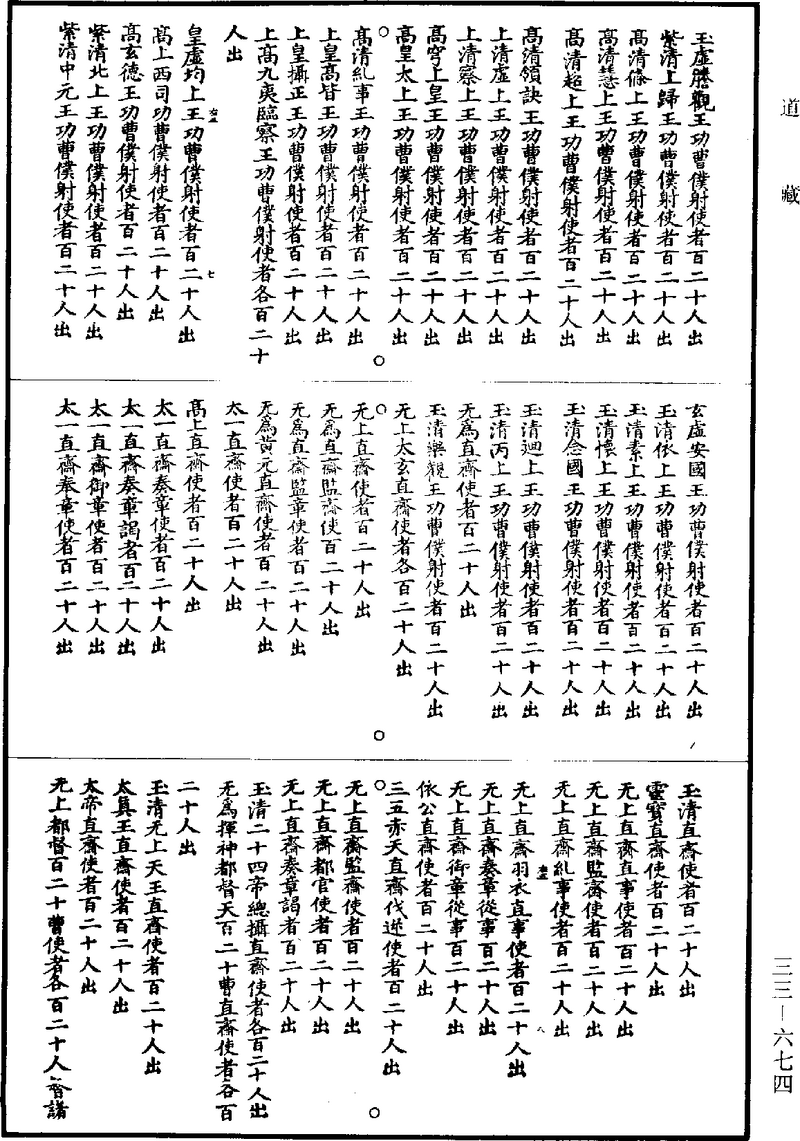 道藏
玉虛勝觀王功曹僕射使者百二十人出
紫清上歸王功曹僕射使者百二十人出
高清條上王功曹僕射使者百二十人出
高清慧上王功曹僕射使者百二十人出
高清超上王功曹僕射使者百二十人出
高清領訣王功曹僕射使者百二十人出
上清虛上王功曹僕射使者百二十人出
上清察上王功曹僕射使者百二十人出
高穹上皇王功曹僕射使者百二十人出
高皇太上王功曹僕射使者百二十人出
高清糺事王功曹僕射使者百二十人出
上皇高皆王功曹僕射使者百二十人出
上皇攝正王功曹僕射使者百二十人出
上高九夷臨察王功曹僕射使者各百二十
人出
皇虛均上王功曹僕射使者百二十人出
七
高上西司功曹僕射使者百二十人出
高玄德王功曹僕射使者百二十人出
紫清北上王功曹僕射使者百二十人出
紫清中元王功曹僕射使者百二十人出
玄虛安國王功曹僕射使者百二十人出
玉清依上王功曹僕射使者百二十人出
玉清素上王功曹僕射使者百二十人出
玉清懷上王功曹僕射使者百二十人出
玉清念國王功曹僕射使者百二十人出
玉清迴上王功曹僕射使者百二十人出
玉清丙上王功曹僕射使者百二十人出
无為直齋使者百二十人出
玉清樂觀王功曹僕射使者百二十人出
无上太玄直齋使者各百二十人出
无上直齋使者百二十人出
无為直齋監齋使百二十人出
无為直齋監章使者百二十人出
无為黃元直齋使者百二十人出
太一直齋使者百二十人出
高上直齋使者百二十人出
太一直齋奏章使者百二十人出
太一直齋奏章謁者百二十人出
太一直齋御章使者百二十人出
太一直齋奉章使者百二十人出
玉清直齋使者百二十人出
靈寶直齋使者百二十人出
无上直齋直事使者百二十人出
无上直齋監齋使者百二十人出
无上直齋糺事使者百二十人出
无上直齋羽衣直事使者百二十人出
八
无上直齋奏章從事百二十人出
无上直齋御章從事百二十人出
依公直齋使者百二十人出
三五赤天直齋伐逆使者百二十人出
无上直齋監齋使者百二十人出
无上直齋都官使者百二十人出
无上直齋奏章謁者百二十人出
玉清二十四帝總攝直齋使者各百二十人出
无為揮神都督天百二十曹直齋使者各百
二十人出
玉清无上天王直齋使者百二十人出
太真王直齋使者百二十人出
太帝直齋使者百二十人出
无上都督百二十曹使者各百二十人督諸
三三－六七四